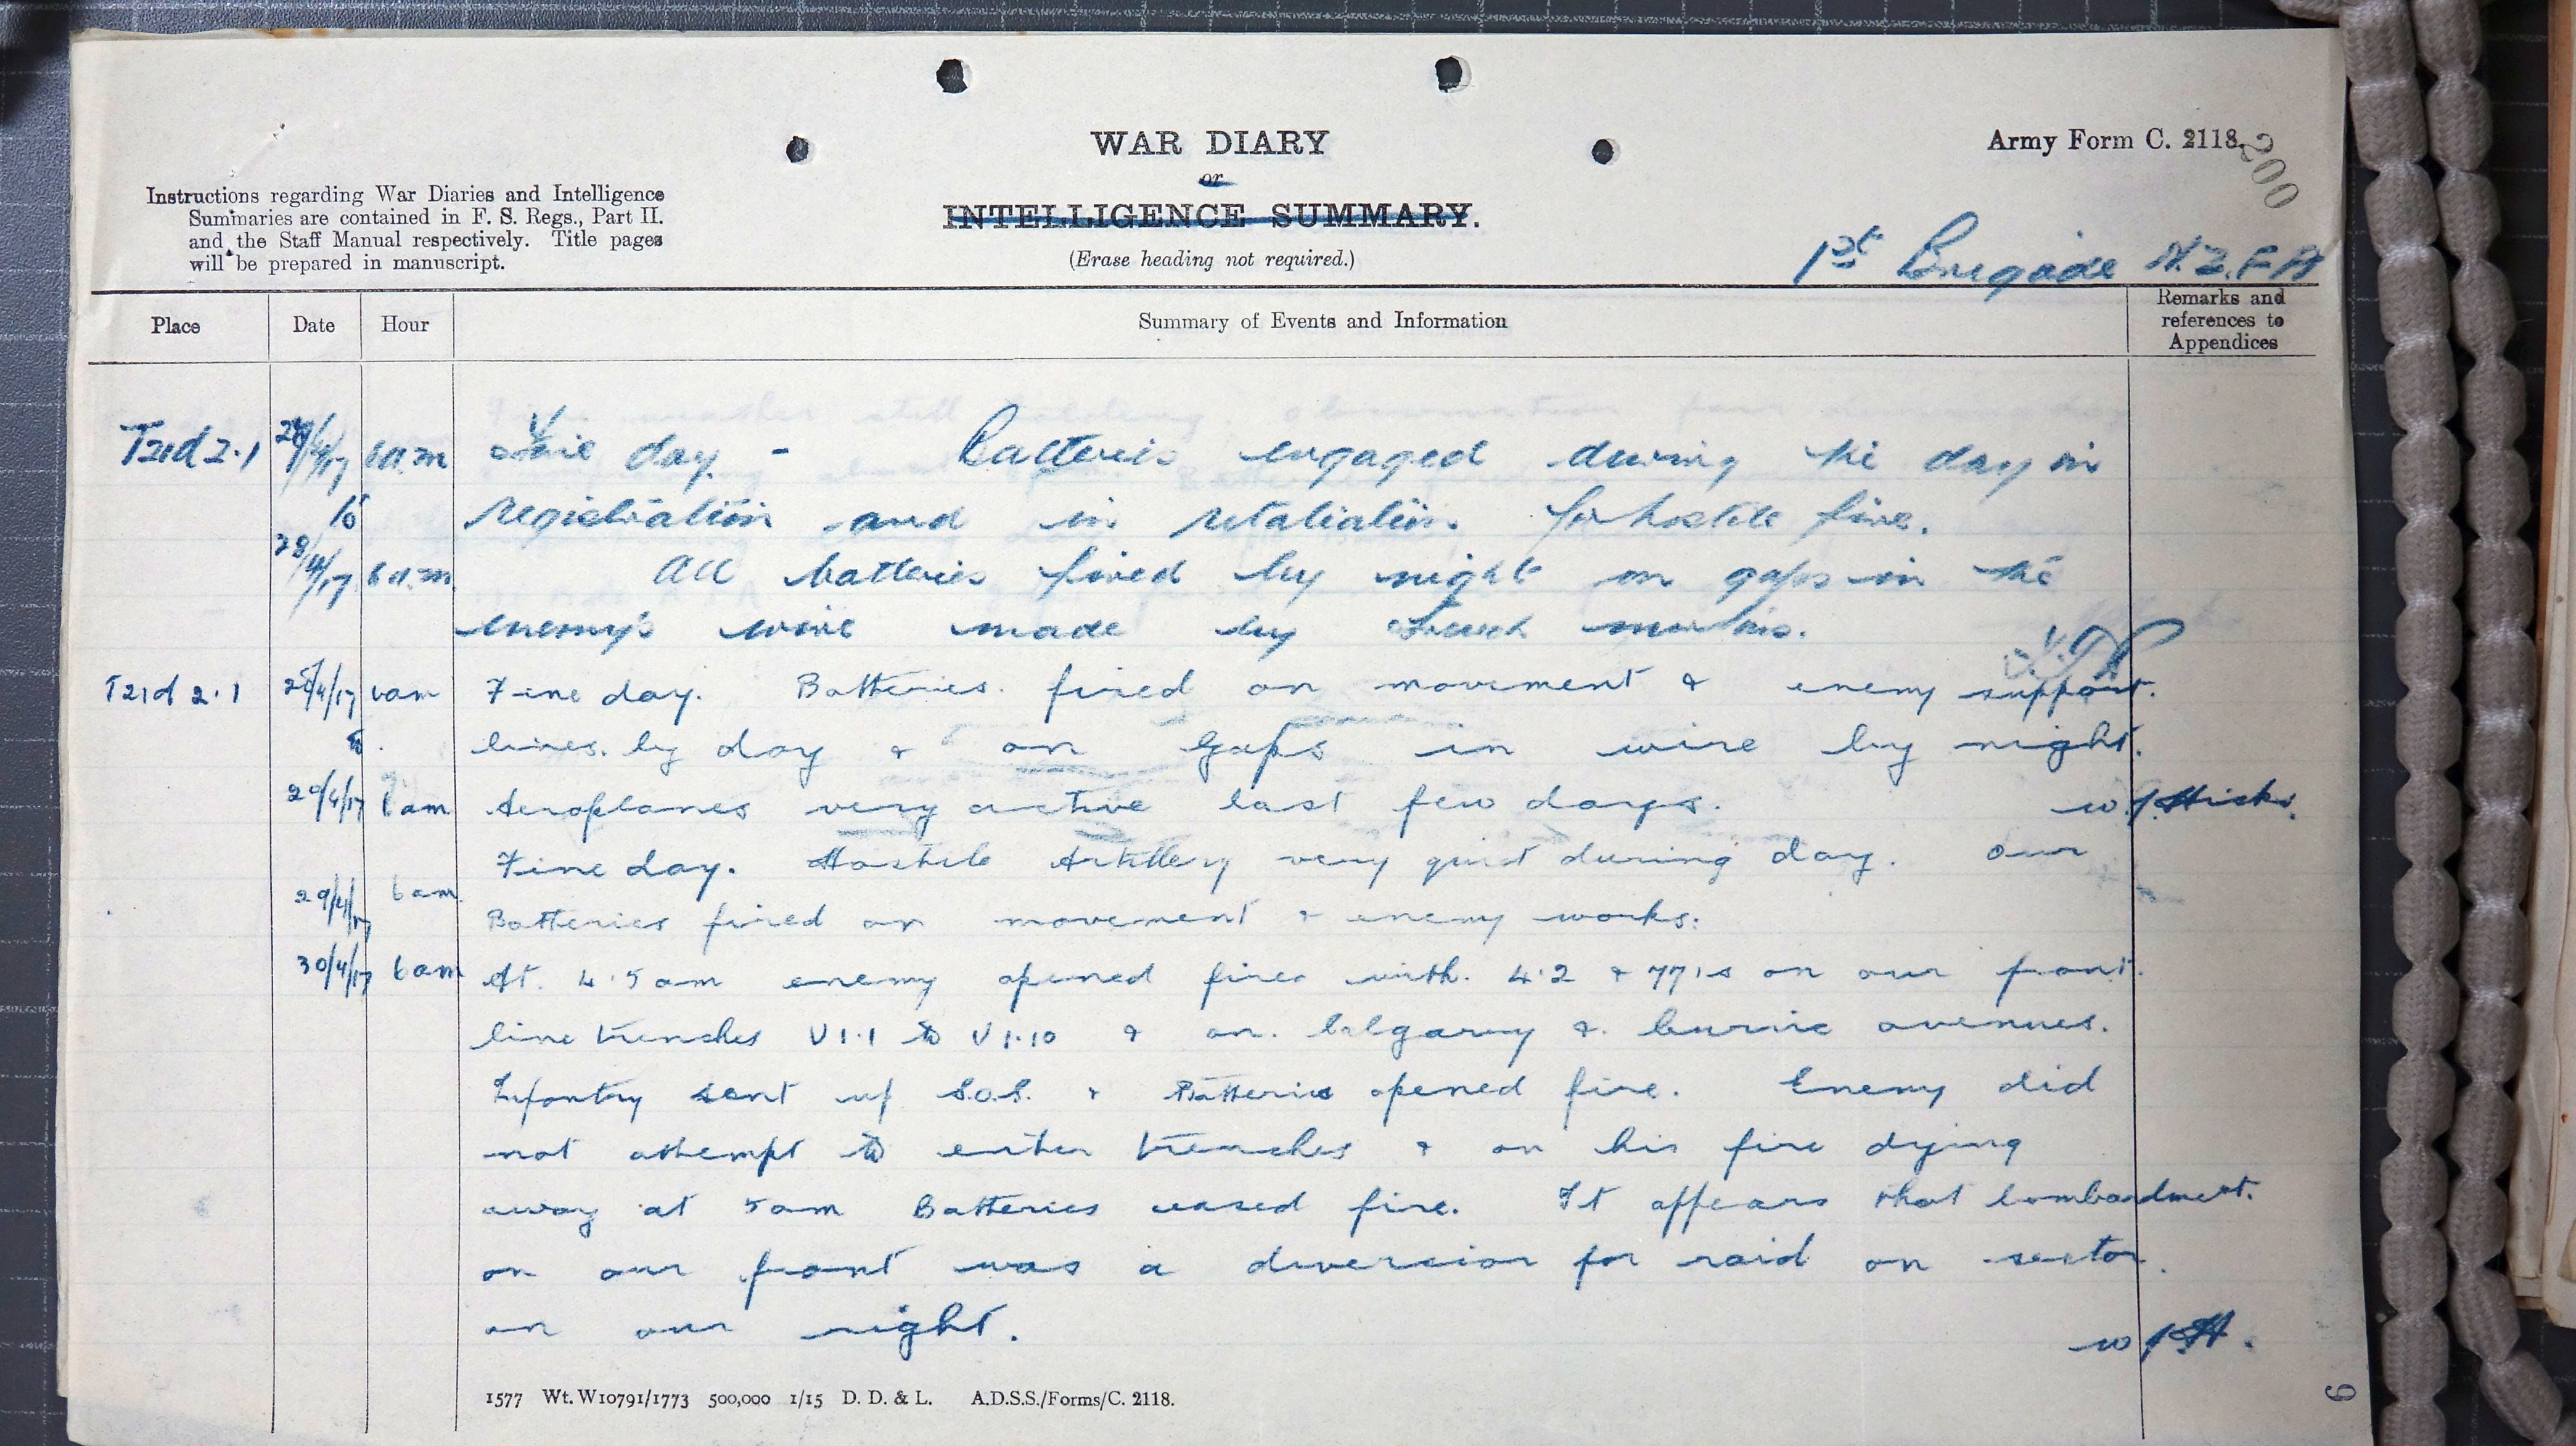 WAR DIARY
or
INTELLIGENCE SUMMARY.
(Erase heading not required.)
Army Form C. 2118.
200
Instructions regarding War Diaries and Intelligence
Summaries are contained in F. S. Regs., Part II.
and the Staff Manual respectively. Title pages
will be prepared in manuscript.
1st Brigade N.Z.F.A
Place Date Hour Summary of Events and Information Remarks and references to Appendices
T21d 2.1 27/4/17 6 a.m Fine day. - Batteries engaged during the day in
to registration and in retaliation for hostile fire.
28/4/17 6 a.m. All batteries fired by night on gaps in the
enemy's wire made by trench mortars.
T21d 2.1 28/4/17 6am Fine day. Batteries fired on movement & enemy support
to. lines by day & on gaps in wire by night.
29/4/17 6am Aeroplanes very active last few days. W. J. Hicks.
Fine day. Hostile Artillery very quiet during day. Our
29/4/17 6am. Batteries fired on movement & enemy works.
30/4/17 6am At 4.5am enemy opened fire with 4.2 & 77's on our front
line trenches U1.1 to U1.10 & on Calgary & Currie avenues.
Infantry sent up S.O.S. & Batteries opened fire. Enemy did
not attempt to enter trenches & on his fire dying
away at 5am Batteries ceased fire. It appears that bombardment
on our front was a diversion for raid on sector
on our right. W J H.
1577 Wt. W10791/1773 500,000 1/15 D. D. & L. A.D.S.S./Forms/C. 2118.